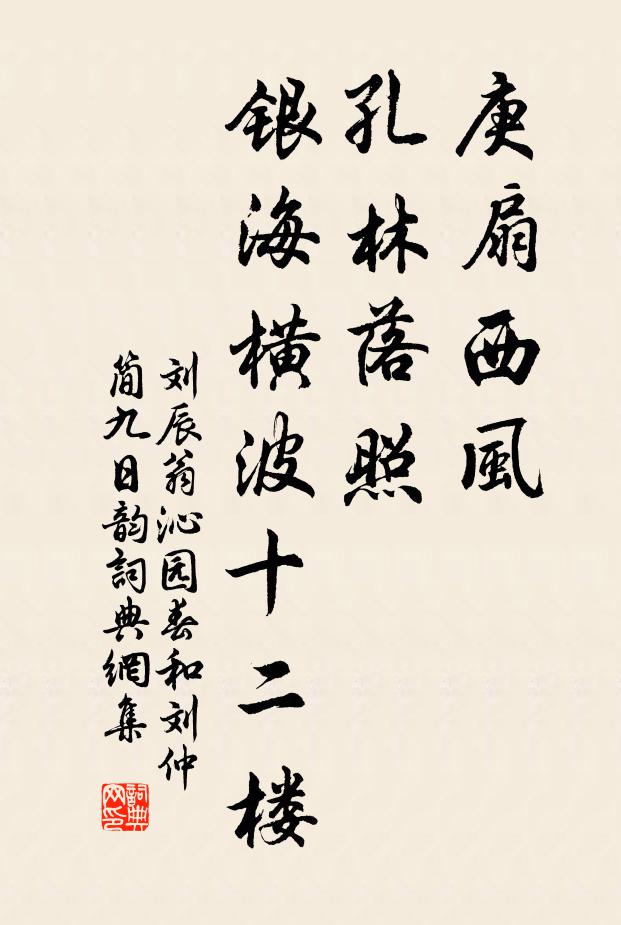 庾扇西風
孔林落照
銀海橫波十二楼
刘辰翁沁园春和刘仲
简九日韵詞典網集
詞典
网印